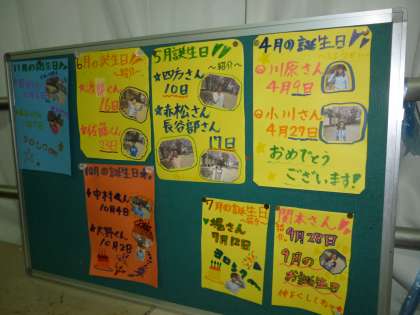 11月の誕生日
6月の誕生日
〜紹介〜
16日
佐藤くん
23日
5月誕生日
〜紹介〜
★四方さん
10日
★赤松さん
長谷部さん
17日
4月の誕生日
川原さん
4月9日
小川さん
4月27日
おめでとう
ございます!
10月の誕生日
中村くん
10月4日
大野くん
10月2日
7月の誕生日
紹介
堀さん
7月12日
ヨロシク
関本さん
9月28日
9月の
お誕生日